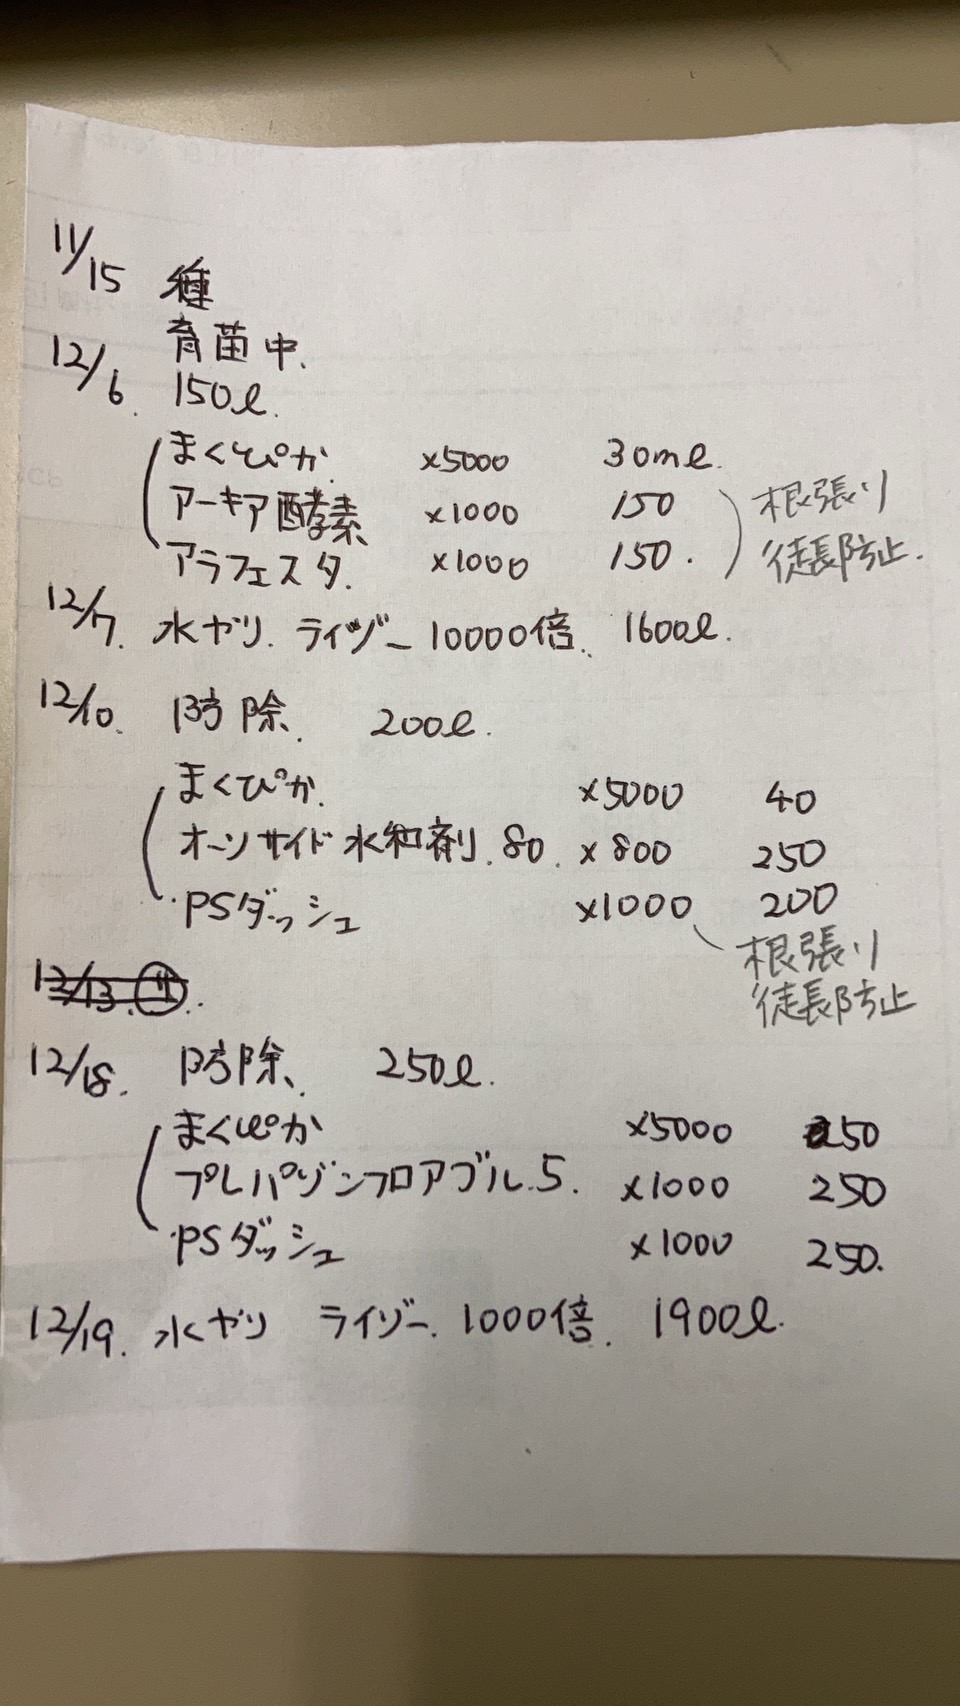 11/15 種
育苗中.
12/6. 150ℓ.
まくぴか ×5000 30mℓ.
アーキア酵素 ×1000 150
アラフェスタ. ×1000 150.
根張り
徒長防止.
12/7. 水ヤリ. ライゾー 10000倍. 1600ℓ.
12/10. 防除. 200ℓ.
まくぴか. ×5000 40
オーソサイド水和剤.80. ×800 250
・PSダッシュ ×1000 200
根張り
徒長防止
12/13.
12/18. 防除、 250ℓ.
まくぴか ×5000 50
プレパゾンフロアブル.5. ×1000 250
・PSダッシュ ×1000 250.
12/19. 水ヤリ ライゾー. 1000倍. 1900ℓ.